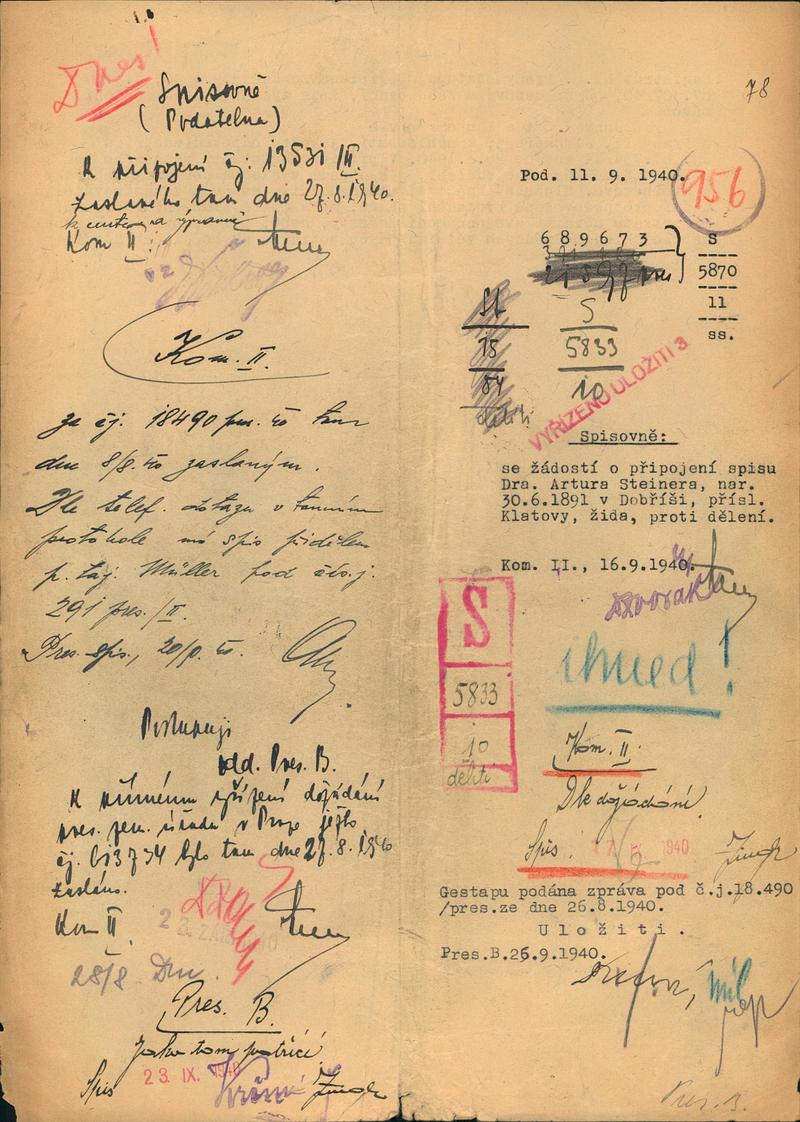 Dnes!
Spisovně
(Podatelna)
K připojení čj: 13531 III.
zaslaného tam dne 27.8.1940.
Kom II.
Kom. II.
za čj. 18490 pres. 40 tam
dne 8/8. 40 zaslaným.
Dle telef. dotazu v tamním
protokole má spis přidělen
p. taj. Müller pod čís. j.
291 pres./II.
Pres. spis., 20/ 40.
Postupuji
odd. Pres. B.
K přímému vyřízení dožádání
pres. zem. úřadu v Praze, jež
čj. 613734 bylo tam dne 27.8.1940
zasláno.
Kom II
28/8
Pres. B.
Jako tam patřící.
Spis 23. IX. 1940
78
Pod. 11. 9. 1940.
956
689673
S
5870
11
ss.
S
5833
10
VYŘÍZENO ULOŽITI 3
Spisovně:
se žádostí o připojení spisu
Dra. Artura Steinera, nar.
30.6.1891 v Dobříši, přísl.
Klatovy, žida, proti dělení.
Kom. II., 16.9.1940.
Dvořák
ihned!
S
5833
10
děliti
Kom. II.
Dle dožádání.
Spis. 1940
Gestapu podána zpráva pod č.j.18.490
/pres.ze dne 26.8.1940.
Uložiti.
Pres.B.26.9.1940.
Pres. B.